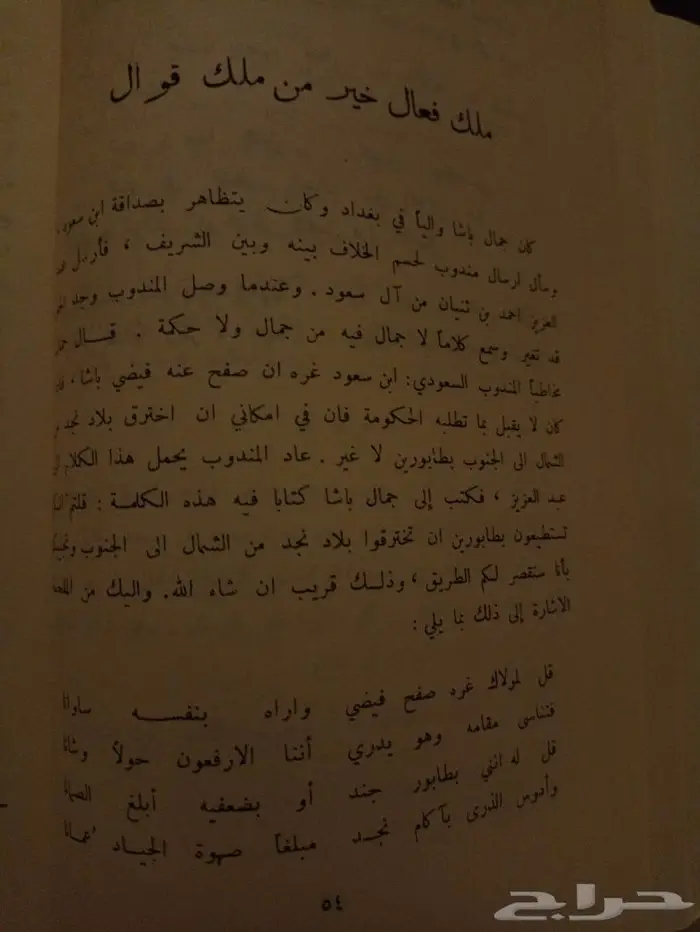 ملك فعال خير من ملك قوال
كان جمال باشا والياً في بغداد وكان يتظاهر بصداقة ابن سعود
وسأل ارسال مندوب لحسم الخلاف بينه وبين الشريف ، فأرسل
العزيز احمد بن ثنيان من آل سعود . وعندما وصل المندوب وجد
قد تغير وسمع كلاماً لا جمال فيه من جمال ولا حكمة . قسال
مخاطباً المندوب السعودي: ابن سعود غره ان صفح عنه فيضي باشا .
كان لا يقبل بما تطلبه الحكومة فان في امكاني ان اخترق بلاد نجد
الشمال الى الجنوب بطابورين لا غير . عاد المندوب يحمل هذا الكلام
عبد العزيز ، فكتب إلى جمال باشا كتابا فيه هذه الكلمة : قلتم
تستطيعون بطابورين ان تخترقوا بلاد نجد من الشمال الى الجنوب
بأنا سنقصر لكم الطريق ، وذلك قريب ان شاء الله. واليك من
الاشارة إلى ذلك بما يلي :
قل لمولاك غره صفح فيضي واراه بنفسه ساوانا
فتناسى مقامه وهو يدري أننا الارفعون حولاً وشانا
قل له انني بطابور جند أو بضعفيه أبلغ الصمانا
وأدوس الذرى بآكام نجد مبلغاً صهوة الجياد عمانا
٥٤
حراج